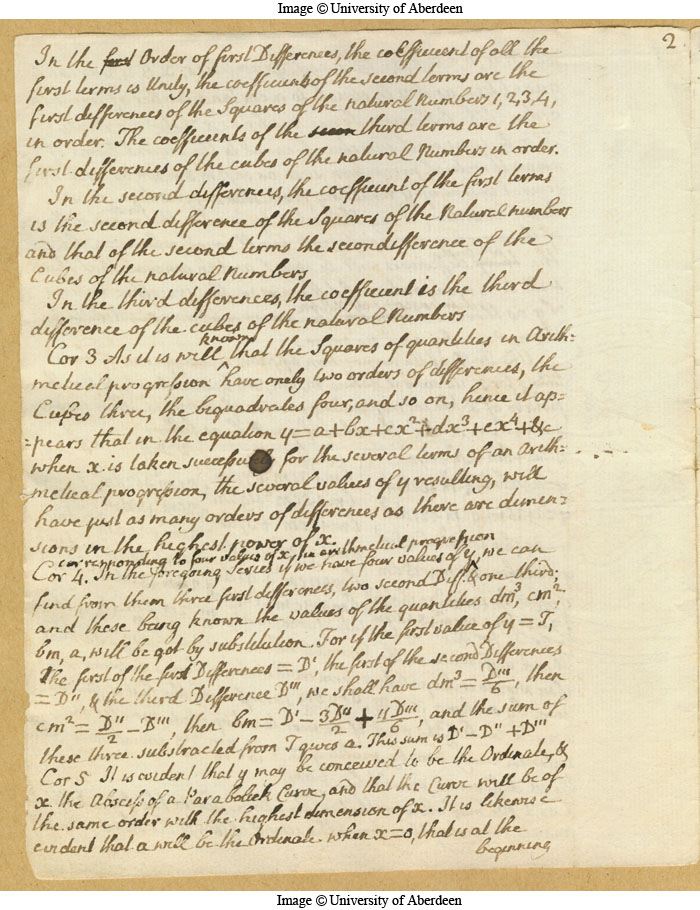 Image © University of Aberdeen
2
In the first Order of first Differences, the coefficient of all the
first terms is Unity, the coefficients of the second terms are the
first differences of the Squares of the natural Numbers 1, 2, 3, 4,
in order. The coefficients of the third terms are the
first differences of the cubes of the natural Numbers in order.
In the second differences, the coefficient of the first terms
is the second difference of the Squares of the Natural numbers
and that of the second terms the second difference of the
Cubes of the natural Numbers
In the third differences, the coefficient is the third
difference of the cubes of the natural Numbers
known
Cor 3 As it is well ^ that the Squares of quantities in Arith=
metical progression have onely two orders of differences, the
Cubes three, the biquadrates four, and so on, hence it ap=
=pears that in the equation y=a+bx+cx²+dx³+ex⁴+&c
when x is taken for the several terms of an Arith=
=metical progression, the several values of y resulting, will
have just as many orders of differences as there are dimen=
sions in the highest power of x.
corresponding to four values of x, in arithmetical progression
Cor 4. In the foregoing Series if we have four values of y, ^ we can
find from them three first differences, two second Diff. & one third;
and these being known the values of the quantities dm³, cm²,
bm, a, will be got by substitution. For if the first value of y = T,
The first of the first Differences = D', the first of the second Differences
= D'', & the third Difference D''', we shall have dm³ = D'''/6, then
cm² = D''/2 - D''', then bm = D' - 3D''/2 + 11D'''/6, and the sum of
these three substracted from T gives a. This sum is D' - D'' + D'''
Cor 5 It is evident that y may be conceived to be the Ordinate, &
x the Absciss of a Parabolick Curve, and that the Curve will be of
the same order with the highest dimension of x. It is likewise
evident that a will be the Ordinate when x=0, that is at the
beginning
Image © University of Aberdeen